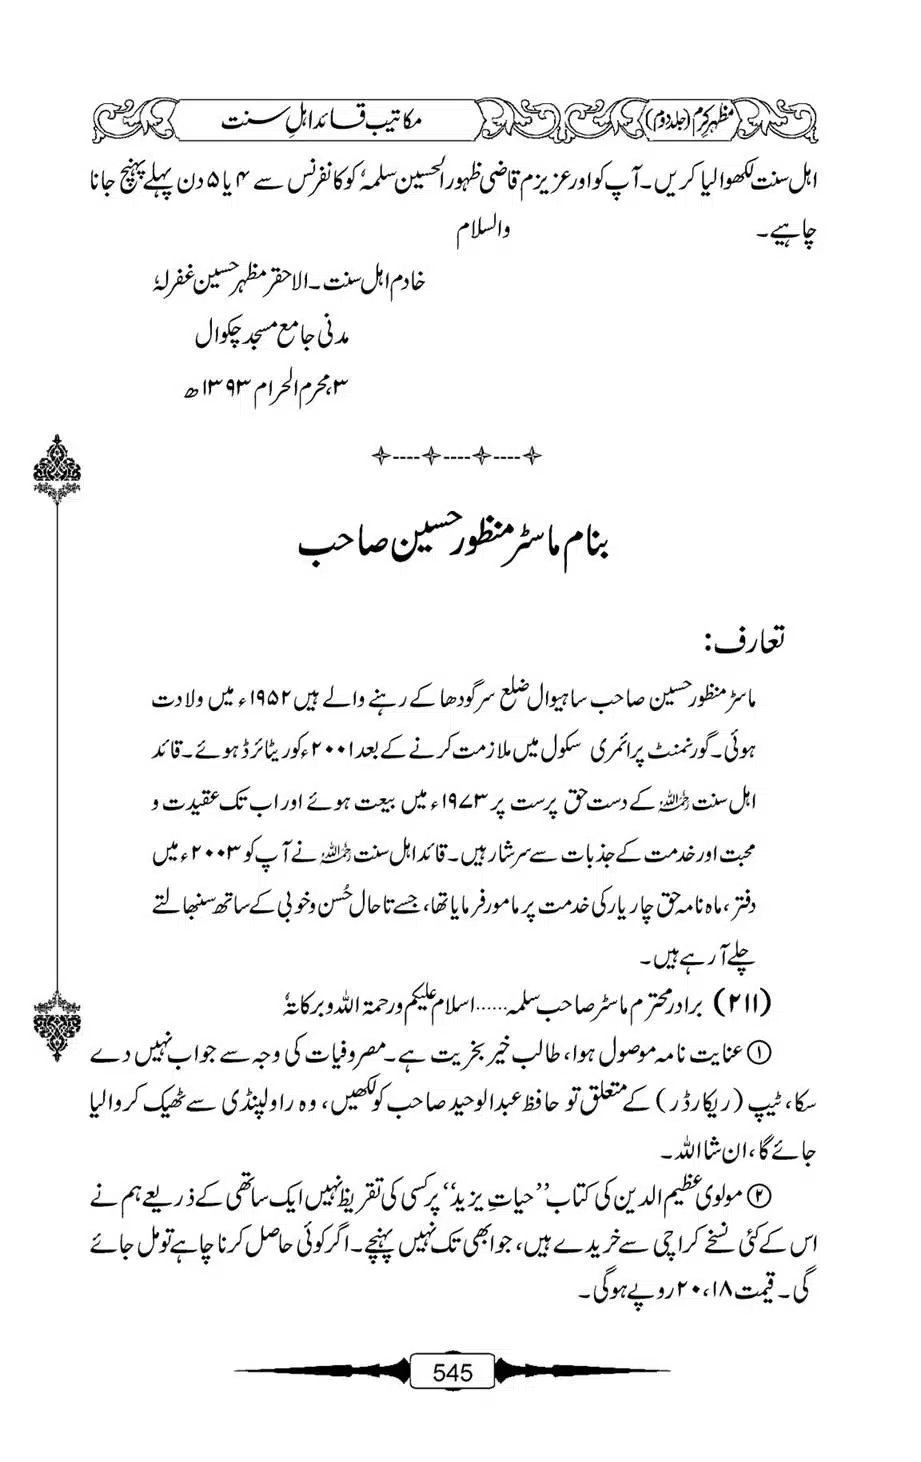 مظہرِ کرم (جلد دوم)
مکاتیب قائد اہلِ سنت
اہل سنت لکھوا لیا کریں۔ آپ کو اور عزیزم قاضی ظہور الحسین سلمہٗ کو کانفرنس سے ۴ یا ۵ دن پہلے پہنچ جانا
چاہیے۔ والسلام
خادم اہل سنت۔ الاحقر مظہر حسین غفرلہٗ
مدنی جامع مسجد چکوال
۳، محرم الحرام ۱۳۹۳ھ
بنام ماسٹر منظور حسین صاحب
تعارف:
ماسٹر منظور حسین صاحب ساہیوال ضلع سرگودھا کے رہنے والے ہیں ۱۹۵۲ء میں ولادت
ہوئی۔ گورنمنٹ پرائمری سکول میں ملازمت کرنے کے بعد ۲۰۰۱ء کو ریٹائرڈ ہوئے۔ قائد
اہل سنت رحمہ اللہ کے دست حق پرست پر ۱۹۷۳ء میں بیعت ہوئے اور اب تک عقیدت و
محبت اور خدمت کے جذبات سے سرشار ہیں۔ قائد اہل سنت رحمہ اللہ نے آپ کو ۲۰۰۳ء میں
دفتر، ماہ نامہ حق چار یار کی خدمت پر مامور فرمایا تھا، جسے تاحال حُسن و خوبی کے ساتھ سنبھالتے
چلے آرہے ہیں۔
(۲۱۱) برادر محترم ماسٹر صاحب سلمہ......اسلام علیکم ورحمۃ اللہ وبرکاتہٗ
① عنایت نامہ موصول ہوا، طالب خیر بخریت ہے۔ مصروفیات کی وجہ سے جواب نہیں دے
سکا، ٹیپ (ریکارڈر) کے متعلق تو حافظ عبدالوحید صاحب کو لکھیں، وہ راولپنڈی سے ٹھیک کروا لیا
جائے گا، ان شااللہ۔
② مولوی عظیم الدین کی کتاب ’’حیاتِ یزید‘‘ پر کسی کی تقریظ نہیں ایک ساتھی کے ذریعے ہم نے
اس کے کئی نسخے کراچی سے خریدے ہیں، جو ابھی تک نہیں پہنچے۔ اگر کوئی حاصل کرنا چاہے تو مل جائے
گی۔ قیمت ۲۰،۱۸ روپے ہوگی۔
545